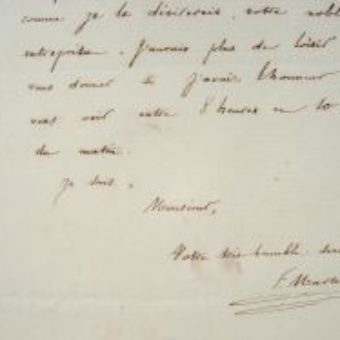 comme je le désirerais, votre nobl
entreprise. J'aurais plus de loisir
vous donner si j'avais l'honneur
vous voir entre 8 heures en 10
du matin.
je suis,
Monsieur,
Votre très humble